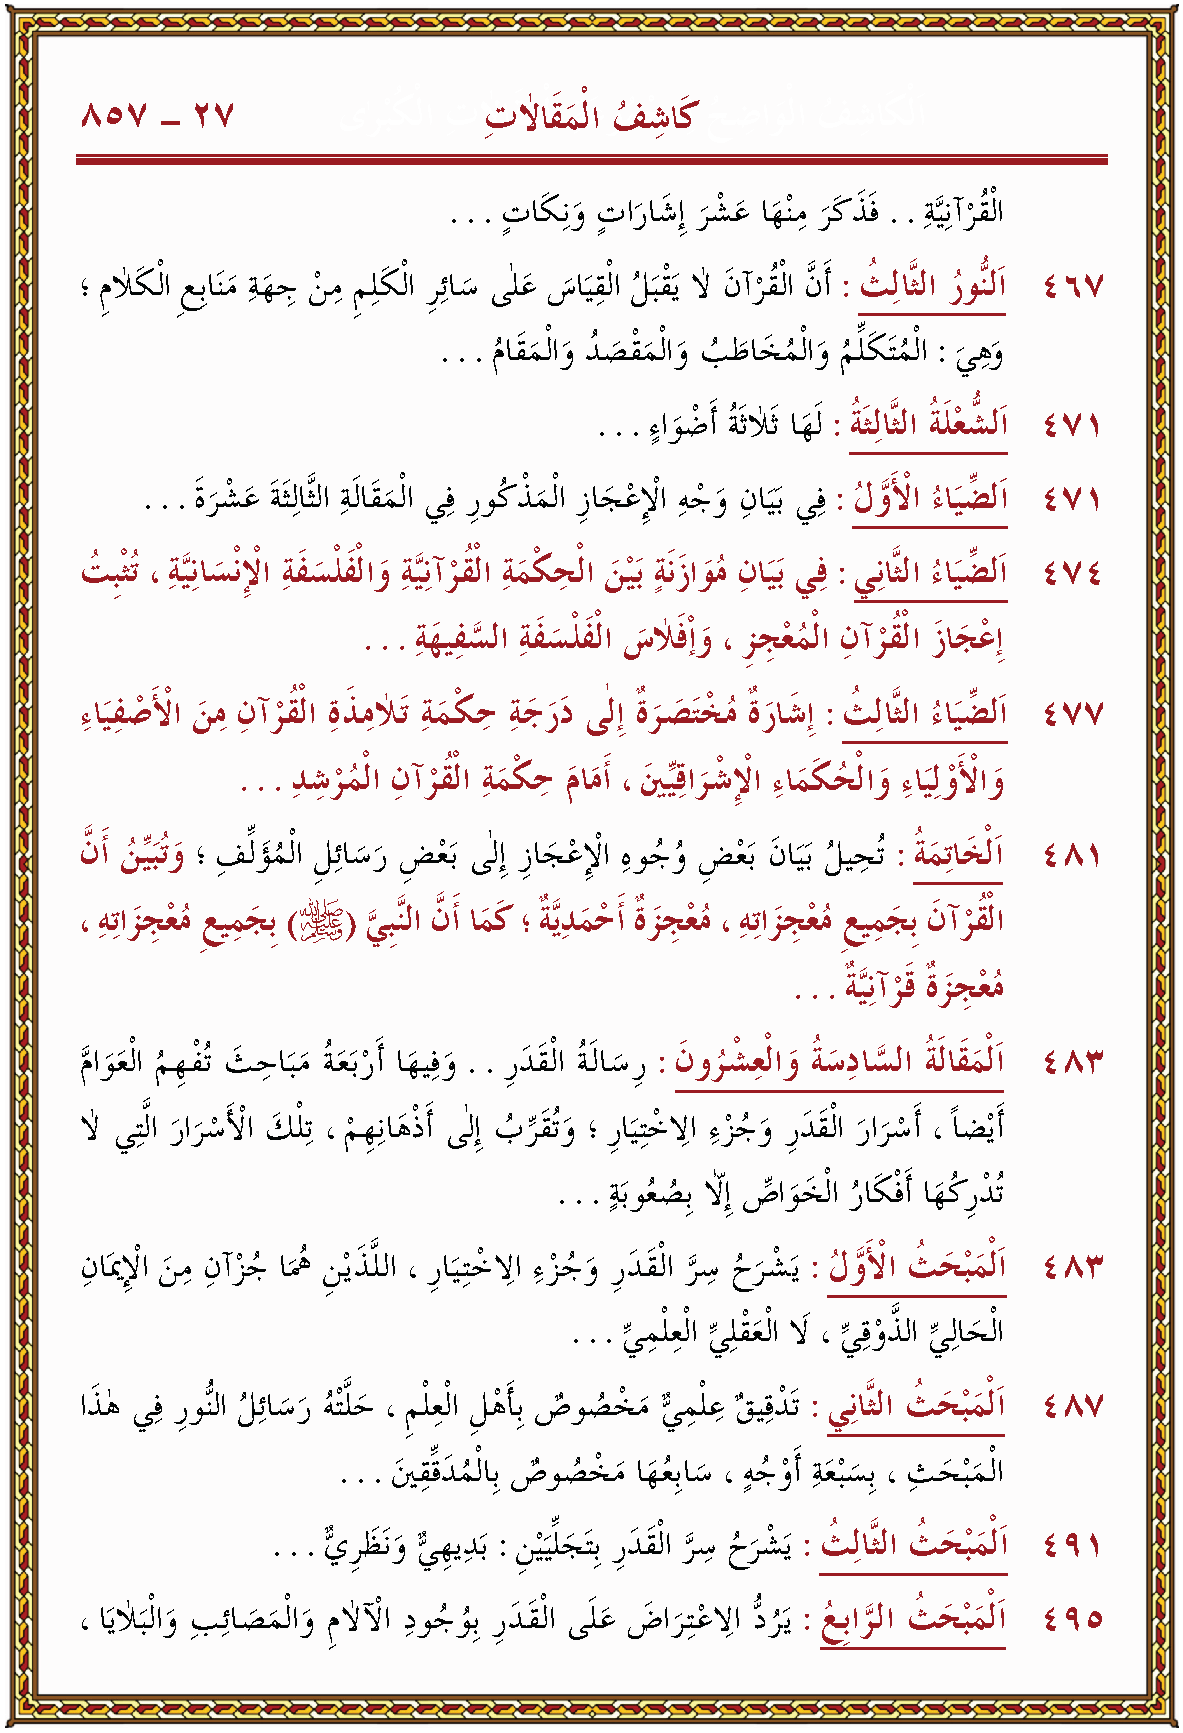 كَاشِفُ الْمَقَالاٰتِ ٢٧ ــ ٨٥٧
الْقُرْآنِيَّةِ . . فَذَكَرَ مِنْهَا عَشْرَ إِشَارَاتٍ وَنِكَاتٍ . . .
٤٦٧ اَلنُّورُ الثَّالِثُ : أَنَّ الْقُرْآنَ لاٰ يُقْبَلُ الْقِيَاسَ عَلٰى سَائِرِ الْكَلِمِ مِنْ جِهَةِ مَنَابِعِ الْكَلاٰمِ ؛
وَهِيَ : الْمُتَكَلِّمُ وَالْمُخَاطَبُ وَالْمَقْصَدُ وَالْمَقَامُ . . .
٤٧١ اَلشُّعْلَةُ الثَّالِثَةُ : لَهَا ثَلاٰثَةُ أَضْوَاءٍ . . .
٤٧١ اَلضِّيَاءُ الْأَوَّلُ : فِي بَيَانِ وَجْهِ الْإِعْجَازِ الْمَذْكُورِ فِي الْمَقَالَةِ الثَّالِثَةَ عَشْرَةَ . . .
٤٧٤ اَلضِّيَاءُ الثَّانِي : فِي بَيَانِ مُوَازَنَةٍ بَيْنَ الْحِكْمَةِ الْقُرْآنِيَّةِ وَالْفَلْسَفَةِ الْإِنْسَانِيَّةِ ، تُثْبِتُ
إِعْجَازَ الْقُرْآنِ الْمُعْجِزِ ، وَإِفْلاٰسَ الْفَلْسَفَةِ السَّفِيهَةِ . . .
٤٧٧ اَلضِّيَاءُ الثَّالِثُ : إِشَارَةٌ مُخْتَصَرَةٌ إِلٰى دَرَجَةِ حِكْمَةِ تَلاٰمِذَةِ الْقُرْآنِ مِنَ الْأَصْفِيَاءِ
وَالْأَوْلِيَاءِ وَالْحُكَمَاءِ الْإِشْرَاقِيِّينَ ، أَمَامَ حِكْمَةِ الْقُرْآنِ الْمُرْشِدِ . . .
٤٨١ اَلْخَاتِمَةُ : تُحِيلُ بَيَانَ بَعْضِ وُجُوهِ الْإِعْجَازِ إِلٰى بَعْضِ رَسَائِلِ الْمُؤَلِّفِ ؛ وَتُبَيِّنُ أَنَّ
الْقُرْآنَ بِجَمِيعِ مُعْجِزَاتِهِ ، مُعْجِزَةٌ أَحْمَدِيَّةٌ ؛ كَمَا أَنَّ النَّبِيَّ (ﷺ) بِجَمِيعِ مُعْجِزَاتِهِ ،
مُعْجِزَةٌ قَرْآنِيَّةٌ . . .
٤٨٣ اَلْمَقَالَةُ السَّادِسَةُ وَالْعِشْرُونَ : رِسَالَةُ الْقَدَرِ . . وَفِيهَا أَرْبَعَةُ مَبَاحِثَ تُفْهِمُ الْعَوَامَّ
أَيْضاً ، أَسْرَارَ الْقَدَرِ وَجُزْءِ الاِخْتِيَارِ ؛ وَتُقَرِّبُ إِلٰى أَذْهَانِهِمْ ، تِلْكَ الْأَسْرَارَ الَّتِي لاٰ
تُدْرِكُهَا أَفْكَارُ الْخَوَاصِّ إِلاّٰ بِصُعُوبَةٍ . . .
٤٨٣ اَلْمَبْحَثُ الْأَوَّلُ : يَشْرَحُ سِرَّ الْقَدَرِ وَجُزْءِ الاِخْتِيَارِ ، اللَّذَيْنِ هُمَا جُزْآنِ مِنَ الْإِيمَانِ
الْحَالِيِّ الذَّوْقِيِّ ، لَا الْعَقْلِيِّ الْعِلْمِيِّ . . .
٤٨٧ اَلْمَبْحَثُ الثَّانِي : تَدْقِيقٌ عِلْمِيٌّ مَخْصُوصٌ بِأَهْلِ الْعِلْمِ ، حَلَّتْهُ رَسَائِلُ النُّورِ فِي هٰذَا
الْمَبْحَثِ ، بِسَبْعَةِ أَوْجُهٍ ، سَابِعُهَا مَخْصُوصٌ بِالْمُدَقِّقِينَ . . .
٤٩١ اَلْمَبْحَثُ الثَّالِثُ : يَشْرَحُ سِرَّ الْقَدَرِ بِتَجَلِّيَيْنِ : بَدِيهِيٌّ وَنَظَرِيٌّ . . .
٤٩٥ اَلْمَبْحَثُ الرَّابِعُ : يَرُدُّ الاِعْتِرَاضَ عَلَى الْقَدَرِ بِوُجُودِ الْآلاٰمِ وَالْمَصَائِبِ وَالْبَلاٰيَا ،